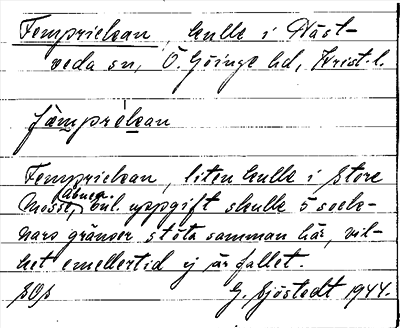 Femprickan, kulle i Häst-
veda sn, Ö. Göinge hd, Krist. l.
fæmprékan
Femprickan, liten kulle i Store
Mosse, enl. uppgift skulle 5 sock-
nars gränser stöta samman här, vil-
ket emellertid ej är fallet.
G. Sjöstedt 1944.